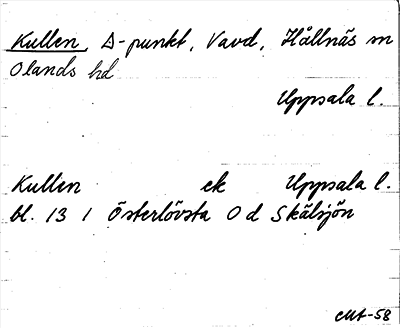 Kullen, Δ-punkt, Vavd, Hållnäs sn
Olands hd
Uppsala l.
Kullen ek Uppsala l.
bl. 13 I Österlövsta O d Skälsjön
-58